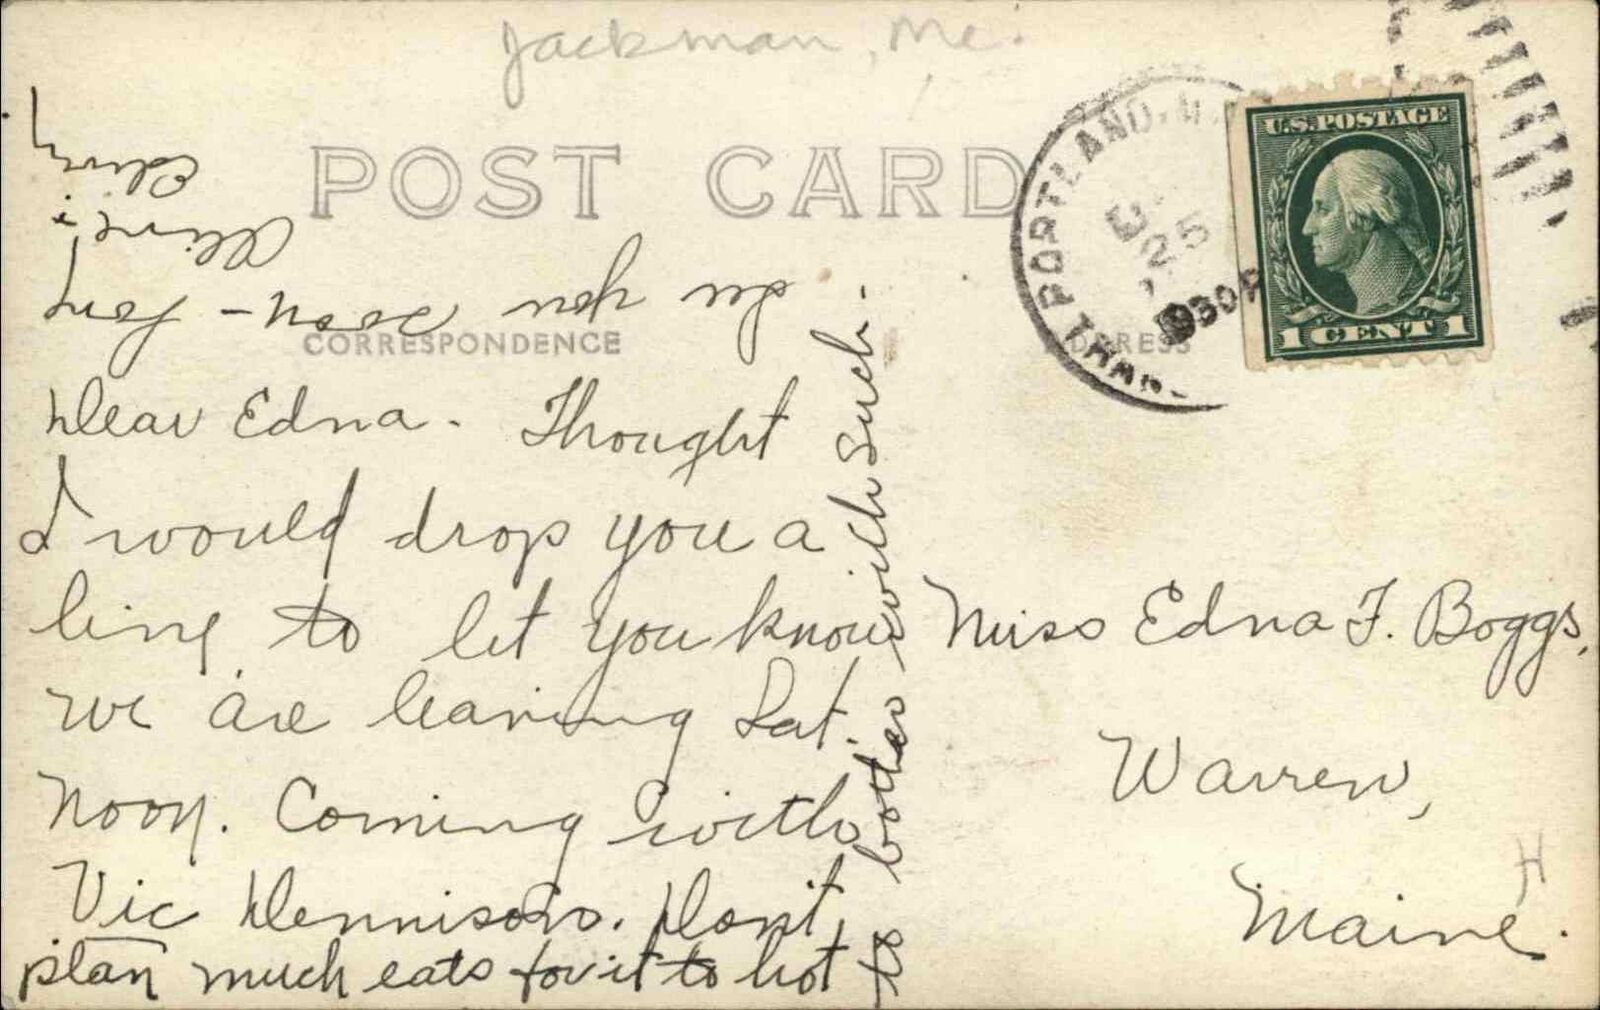 Jackman, Me.
POST CARD
CORRESPONDENCE
ADDRESS
PORTLAND, M
25
30P
U.S. POSTAGE
1 CENT 1
Dear Edna. Thought
I would drop you a
line to let you know
we are leaving Sat.
Noon. Coming with
Vic Dennison. Dont
plan much eats for it to hot
to bother with such.
See you soon - Fern
Aline
Miss Edna F. Boggs,
Warren,
Maine.
H